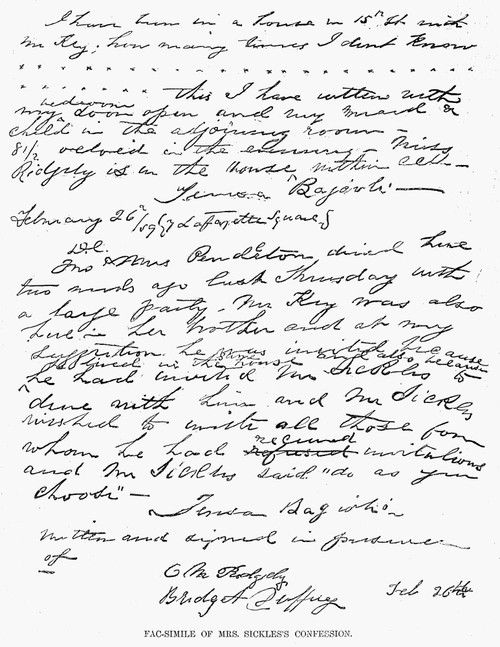 I have been in a house in 15th St. with
Mr Key; how many times I dont know
* * * * * * * * * * * * * * * * * *
* * * * * * * this I have written with
my bedroom door open and my maid &
child in the adjoining room –
8½ oclock in the evening – Miss
Ridgely is in the house, within call –
Teresa Bagioli –
February 26th /59 Lafayette Square
D.C.
Mr & Mrs Pendleton dined here
two weeks ago last Thursday with
a large party. Mr Key was also
here – her brother and at my
suggestion he was invited because
he lived in the house & also because
he had invited Mr Sickles to
dine with him and Mr Sickles
wished to invite all those from
whom he had refused received invitations
and Mr Sickles said "do as you
choose" –
Teresa Bagioli –
Written and signed in presence
of
C M Ridgely
Bridget Duffy Feb 26th
FAC-SIMILE OF MRS. SICKLES'S CONFESSION.